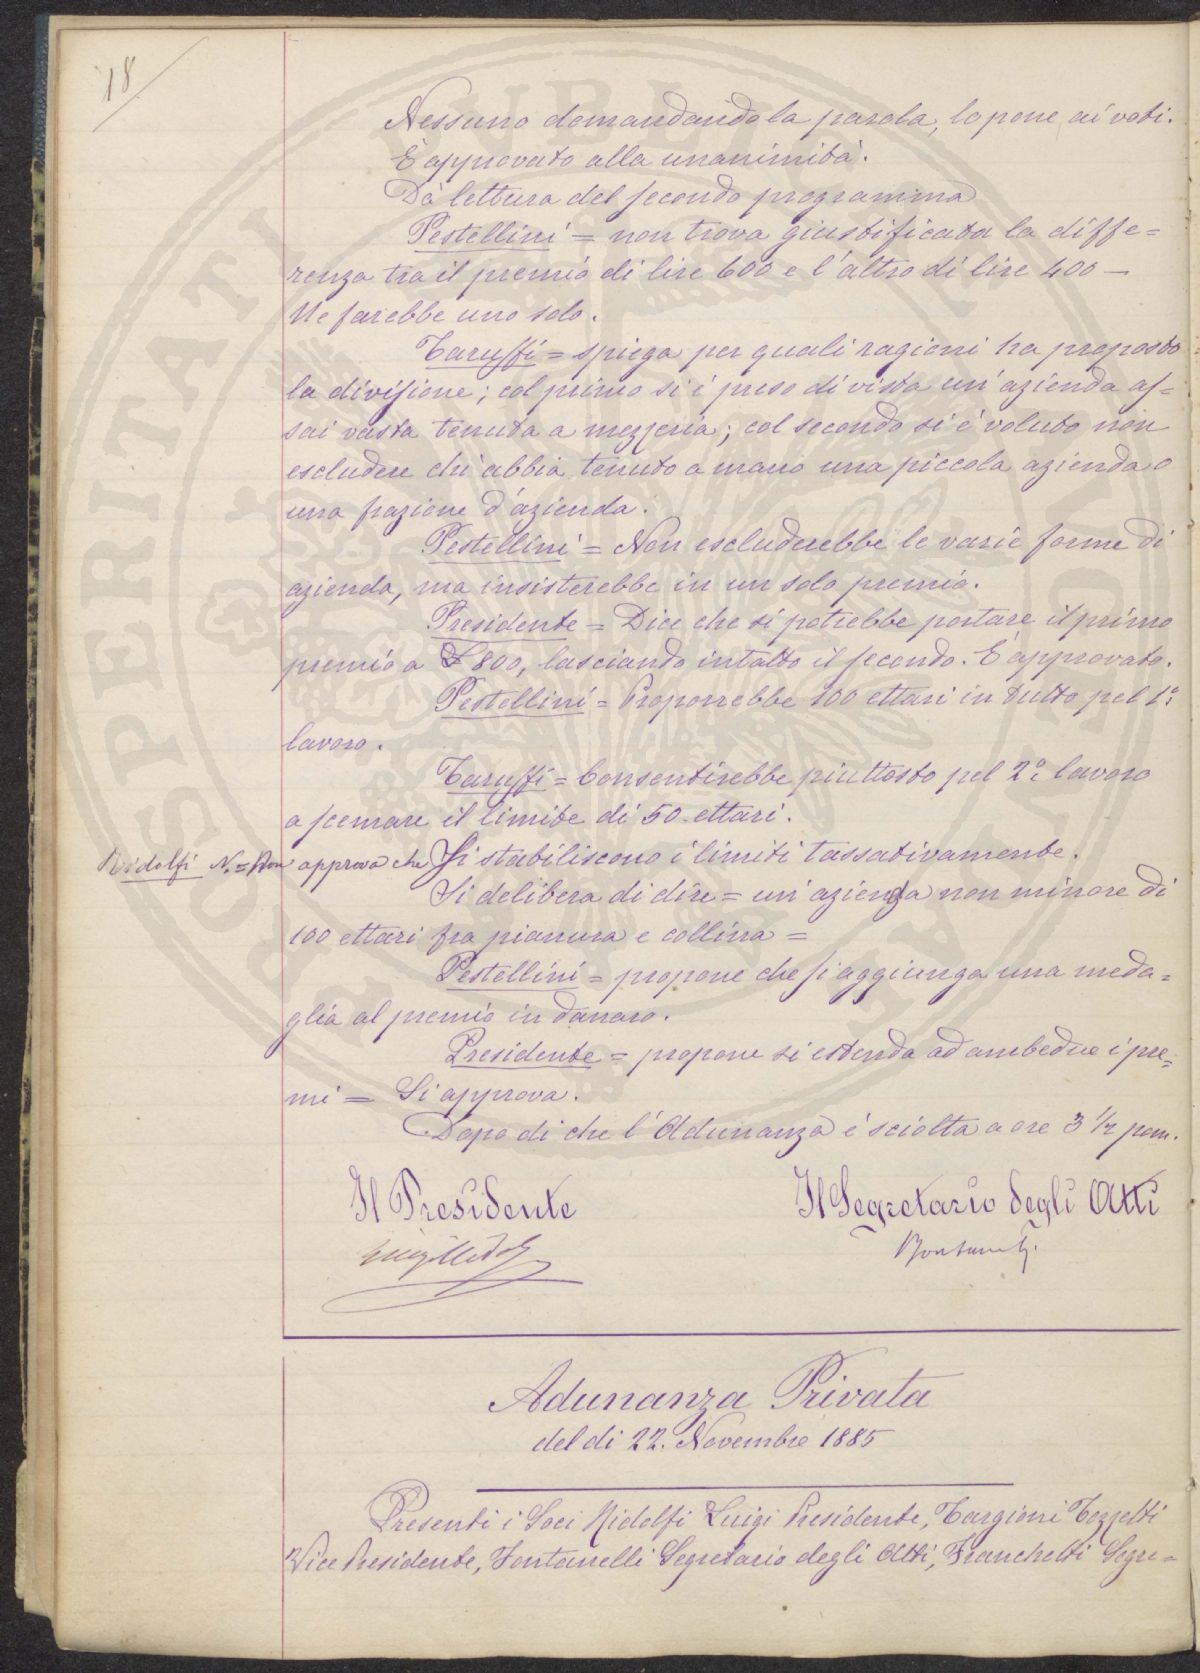 18
Nessuno domandando la parola, lo pone ai voti.
È approvato alla unanimità.
Dà lettura del secondo programma
Pestellini = non trova giustificata la diffe=
renza tra il premio di lire 600 e l'altro di lire 400 —
Ne farebbe uno solo.
Taruffi = spiega per quali ragioni ha proposto
la divisione; col primo si è preso di vista un'azienda as=
sai vasta tenuta a mezzeria; col secondo si è voluto non
escludere chi abbia tenuto a mano una piccola azienda o
una frazione d'azienda.
Pestellini = Non escluderebbe le varie forme di
azienda, ma insisterebbe in un solo premio.
Presidente = Dice che si potrebbe portare il primo
premio a £ 800, lasciando intatto il secondo. È approvato.
Pestellini = Proporrebbe 100 ettari in tutto pel 1º
lavoro.
Taruffi = Consentirebbe piuttosto pel 2º lavoro
a scemare il limite di 50 ettari.
Ridolfi N. = Non approva che si stabiliscono i limiti tassativamente.
Si delibera di dire = un'azienda non minore di
100 ettari fra pianura e collina =
Pestellini = propone che si aggiunga una meda=
glia al premio in danaro.
Presidente = propone si estenda ad ambedue i pre=
mi = Si approva.
Dopo di che l'Adunanza è sciolta a ore 3 1/2 pom.
Il Presidente
Il Segretario degli Atti
Adunanza Privata
del dì 22. Novembre 1885
Presenti i Soci Ridolfi Luigi Presidente, Targioni Tozzetti
Vice Presidente, Fontanelli Segretario degli Atti, Franchetti Segre=
PROSPERITATI PUBLICAE AUGENDAE